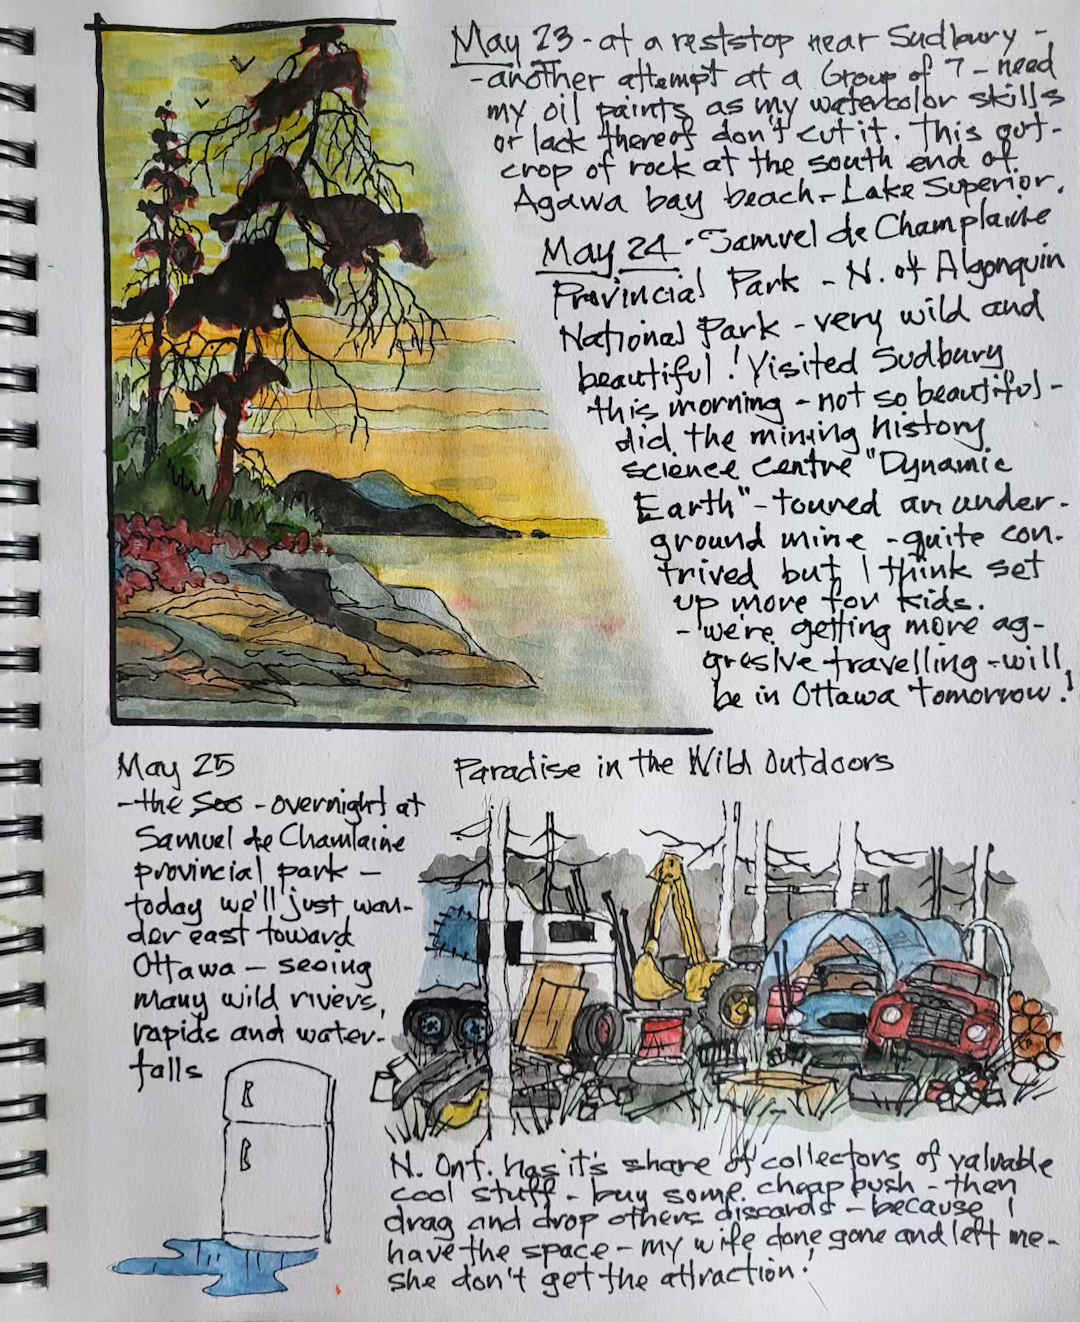 May 23 - at a reststop near Sudbury -
- another attempt at a Group of 7 - need
my oil paints as my watercolor skills
or lack thereof don't cut it. This out-
crop of rock at the south end of
Agawa bay beach - Lake Superior.
May 24 - Samuel de Champlaine
Provincial Park - N. of Algonquin
National Park - very wild and
beautiful! Visited Sudbury
this morning - not so beautiful -
did the mining history
science centre "Dynamic
Earth" - toured an under-
ground mine - quite con-
trived but I think set
up more for kids.
- we're getting more ag-
gresive travelling - will
be in Ottawa tomorrow!
May 25
- the Soo - overnight at
Samuel de Chamlaine
provincial park -
today we'll just wan-
der east toward
Ottawa - seeing
many wild rivers,
rapids and water-
falls
Paradise in the Wild Outdoors
N. Ont. has it's share of collectors of valuable
cool stuff - buy some cheap bush - then
drag and drop others discards - because I
have the space - my wife done gone and left me -
she don't get the attraction!